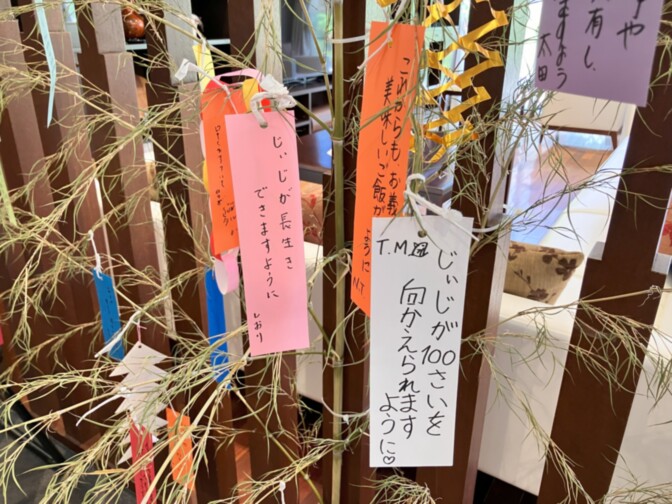 じぃじが長生き
できますように
しおり
じぃじが100さいを
向かえられます
ように♡
T.M
これからも、お義
美味しいご飯が
ように
N.T
や
有し
ますよう
太田